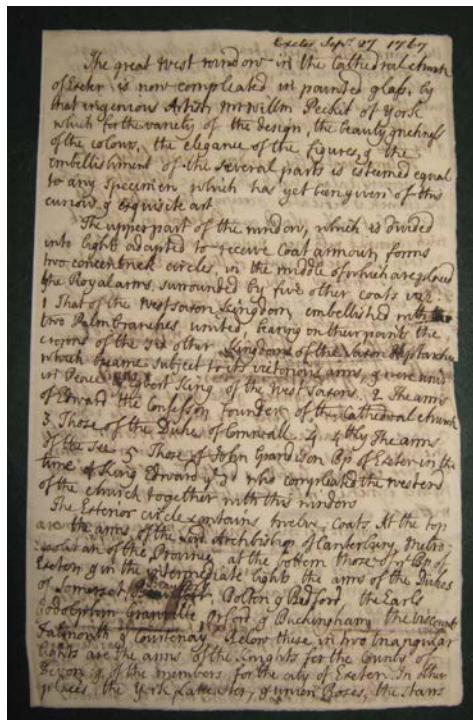 Exeter Sepr. 27 1767
The great West window in the Cathedral church
of Exeter is now compleated in painted glass, by
that ingenious Artist Mr Willm Peckit of York
which for the variety of the design, the beauty & richness
of the colours, the elegance of the figures, & the
embellishment of the several parts is esteemed equal
to any specimen which has yet been given of this
curious & exquisite art
The upper part of the window, which is divided
into lights adapted to receive Coat armour, forms
two concentrick circles, in the middle of which are placed
the Royal arms, surrounded by five other coats viz:
1 That of the West Saxon Kingdom, embellished with
two Palm branches united, bearing on their points the
crowns of the six other Kingdoms of the Saxon Heptarchy
which became subject to its victorious arms, & were
in Peace Egbert King of the West Saxons. 2 The arms
of Edward the Confessor Founder of the Cathedral church
3 Those of the Duke of Cornwall. 4 4thly The arms
of the See. 5 Those of John Grandison Bp of Exeter in the
time of King Edward ye 3d who compleated the west end
of the church together with this window
The Exterior circle contains twelve Coats. At the top
are the arms of the Lord Archbishop of Canterbury, Metro
politan of the Province, at the bottom those of ye Bp of
Exeton & in the intermediate lights the arms of the Dukes
of Somerset Beaufort, Bolton & Bedford the Earls
Godolphin Granville Orford & Buckingham, the Viscount
Falmouth & Courtenay. Below these in two triangular
lights are the arms of the Knights for the County of
Devon, & of the members for the city of Exeter. In other
places the York Lancaster, & union Roses, the stars